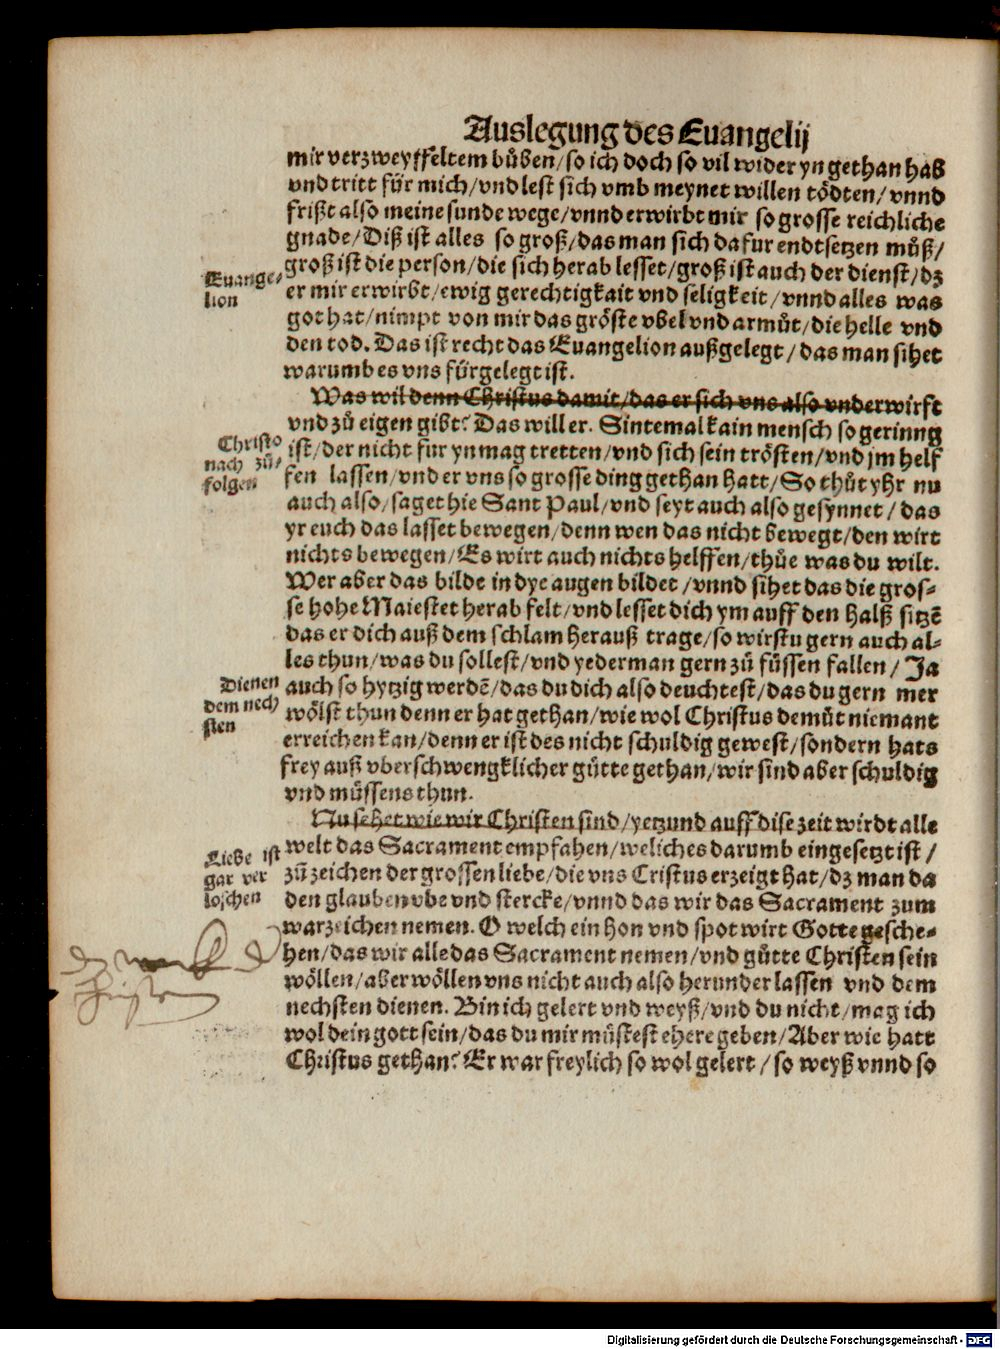 Auslegung des Euangelij
mir verzweyffeltem bůben/so ich doch so vil wider yn gethan hab
vnd tritt für mich/vnd lest sich vmb meynet willen tödten/vnnd
frißt also meine sunde wege/vnnd erwirbt mir so grosse reichliche
gnade/Diß ist alles so groß/das man sich dafur endtsetzen můß/
Euange-
lion
groß ist die person/die sich herab lesset/groß ist auch der dienst/dz
er mir erwirbt/ewig gerechtigkait vnd seligkeit/vnnd alles was
got hat/nimpt von mir das gröste vbel vnd armůt/die helle vnd
den tod. Das ist recht das Euangelion außgelegt/das man sihet
warumb es vns fürgelegt ist.
Was wil denn Christus damit/das er sich vns also vnderwirft
vnd zů eigen gibt? Das will er. Sintemal kain mensch so gerinng
Christo
nach zů-
folgen
ist/der nicht fur yn mag tretten/vnd sich sein trösten/vnd jm helf
fen lassen/vnd er vns so grosse ding gethan hatt/So thůt yhr nu
auch also/saget hie Sant Paul/vnd seyt auch also gesynnet/das
yr euch das lasset bewegen/denn wen das nicht bewegt/den wirt
nichts bewegen/Es wirt auch nichts helffen/thůe was du wilt.
Wer aber das bilde in dye augen bildet/vnnd sihet das die gros-
se hohe Maiestet herab felt/vnd lesset dich ym auff den halß sitzē
das er dich auß dem schlam herauß trage/so wirstu gern auch al-
les thun/was du sollest/vnd yederman gern zů füssen fallen/Ja
Dienen
dem nech
sten
auch so hytzig werdē/das du dich also deuchtest/das du gern mer
wölst thun denn er hat gethan/wie wol Christus demůt niemant
erreichen kan/denn er ist des nicht schuldig gewest/sondern hats
frey auß vberschwengklicher gütte gethan/wir sind aber schuldig
vnd müssens thun.
Nu sehet wie wir Christen sind/yetzund auff dise zeit wirdt alle
Liebe ist
gar ver
loschen
welt das Sacrament empfahen/weliches darumb eingesetzt ist/
zů zeichen der grossen liebe/die vns Cristus erzeigt hat/dz man da
den glauben vbe vnd stercke/vnnd das wir das Sacrament zum
warzeichen nemen. O welch ein hon vnd spot wirt Gotte gesche-
hen/das wir alle das Sacrament nemen/vnd gütte Christen sein
wöllen/aber wöllen vns nicht auch also herunder lassen vnd dem
nechsten dienen. Bin ich gelert vnd weyß/vnd du nicht/mag ich
wol dein gott sein/das du mir müstest ehere geben/Aber wie hatt
Christus gethan? Er war freylich so wol gelert/so weyß vnnd so
Digitalisierung gefördert durch die Deutsche Forschungsgemeinschaft - DFG